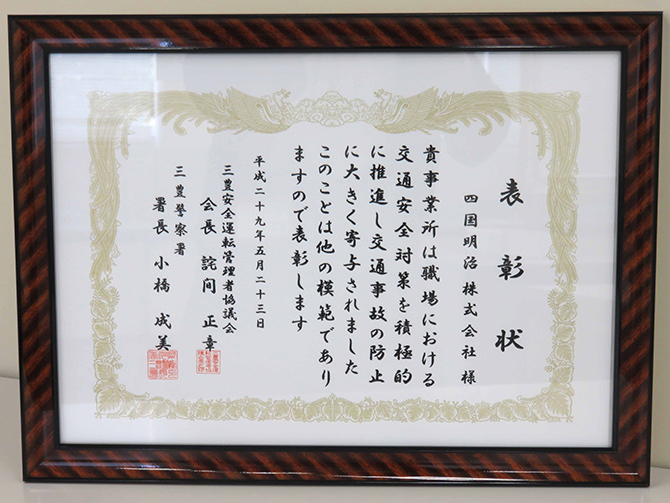 表彰状
四国明治株式会社様
貴事業所は職場における
交通安全対策を積極的
に推進し交通事故の防止
に大きく寄与されました
このことは他の模範であり
ますので表彰します
平成二十九年五月二十三日
三豊安全運転管理者協議会
会長 詫間正章
三豊警察署
署長 小橋成美